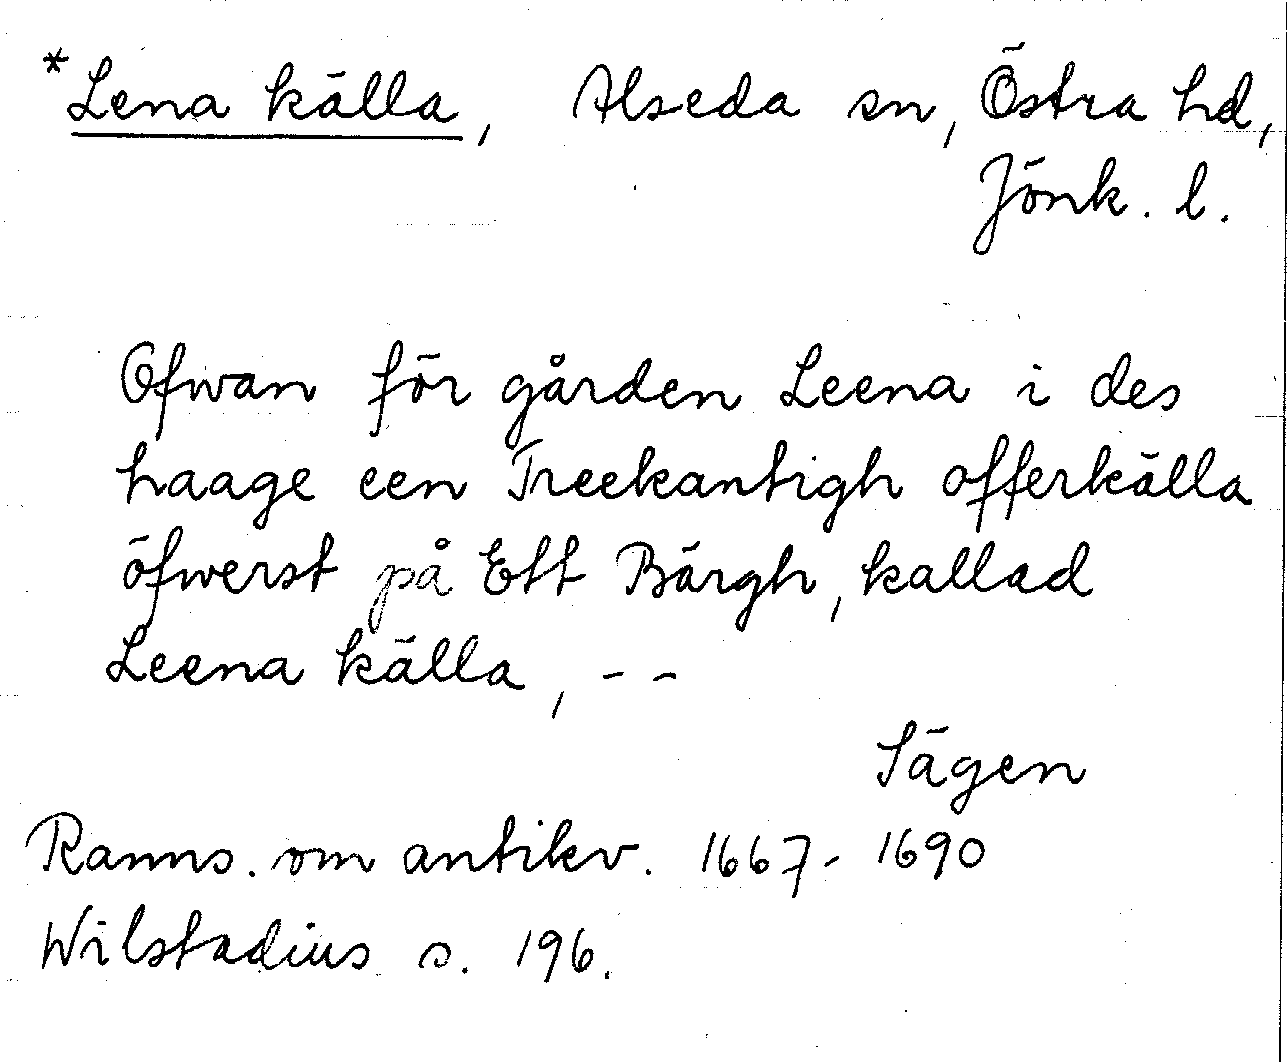 *Lena källa, Alseda sn, Östra hd,
Jönk. l.
Ofwan för gården Leena i des
haage een Treekantigh offerkälla
öfwerst på Ett Bärgh, kallad
Leena källa, - -
Sägen
Ranns. om antikv. 1667-1690
Wilstadius s. 196.